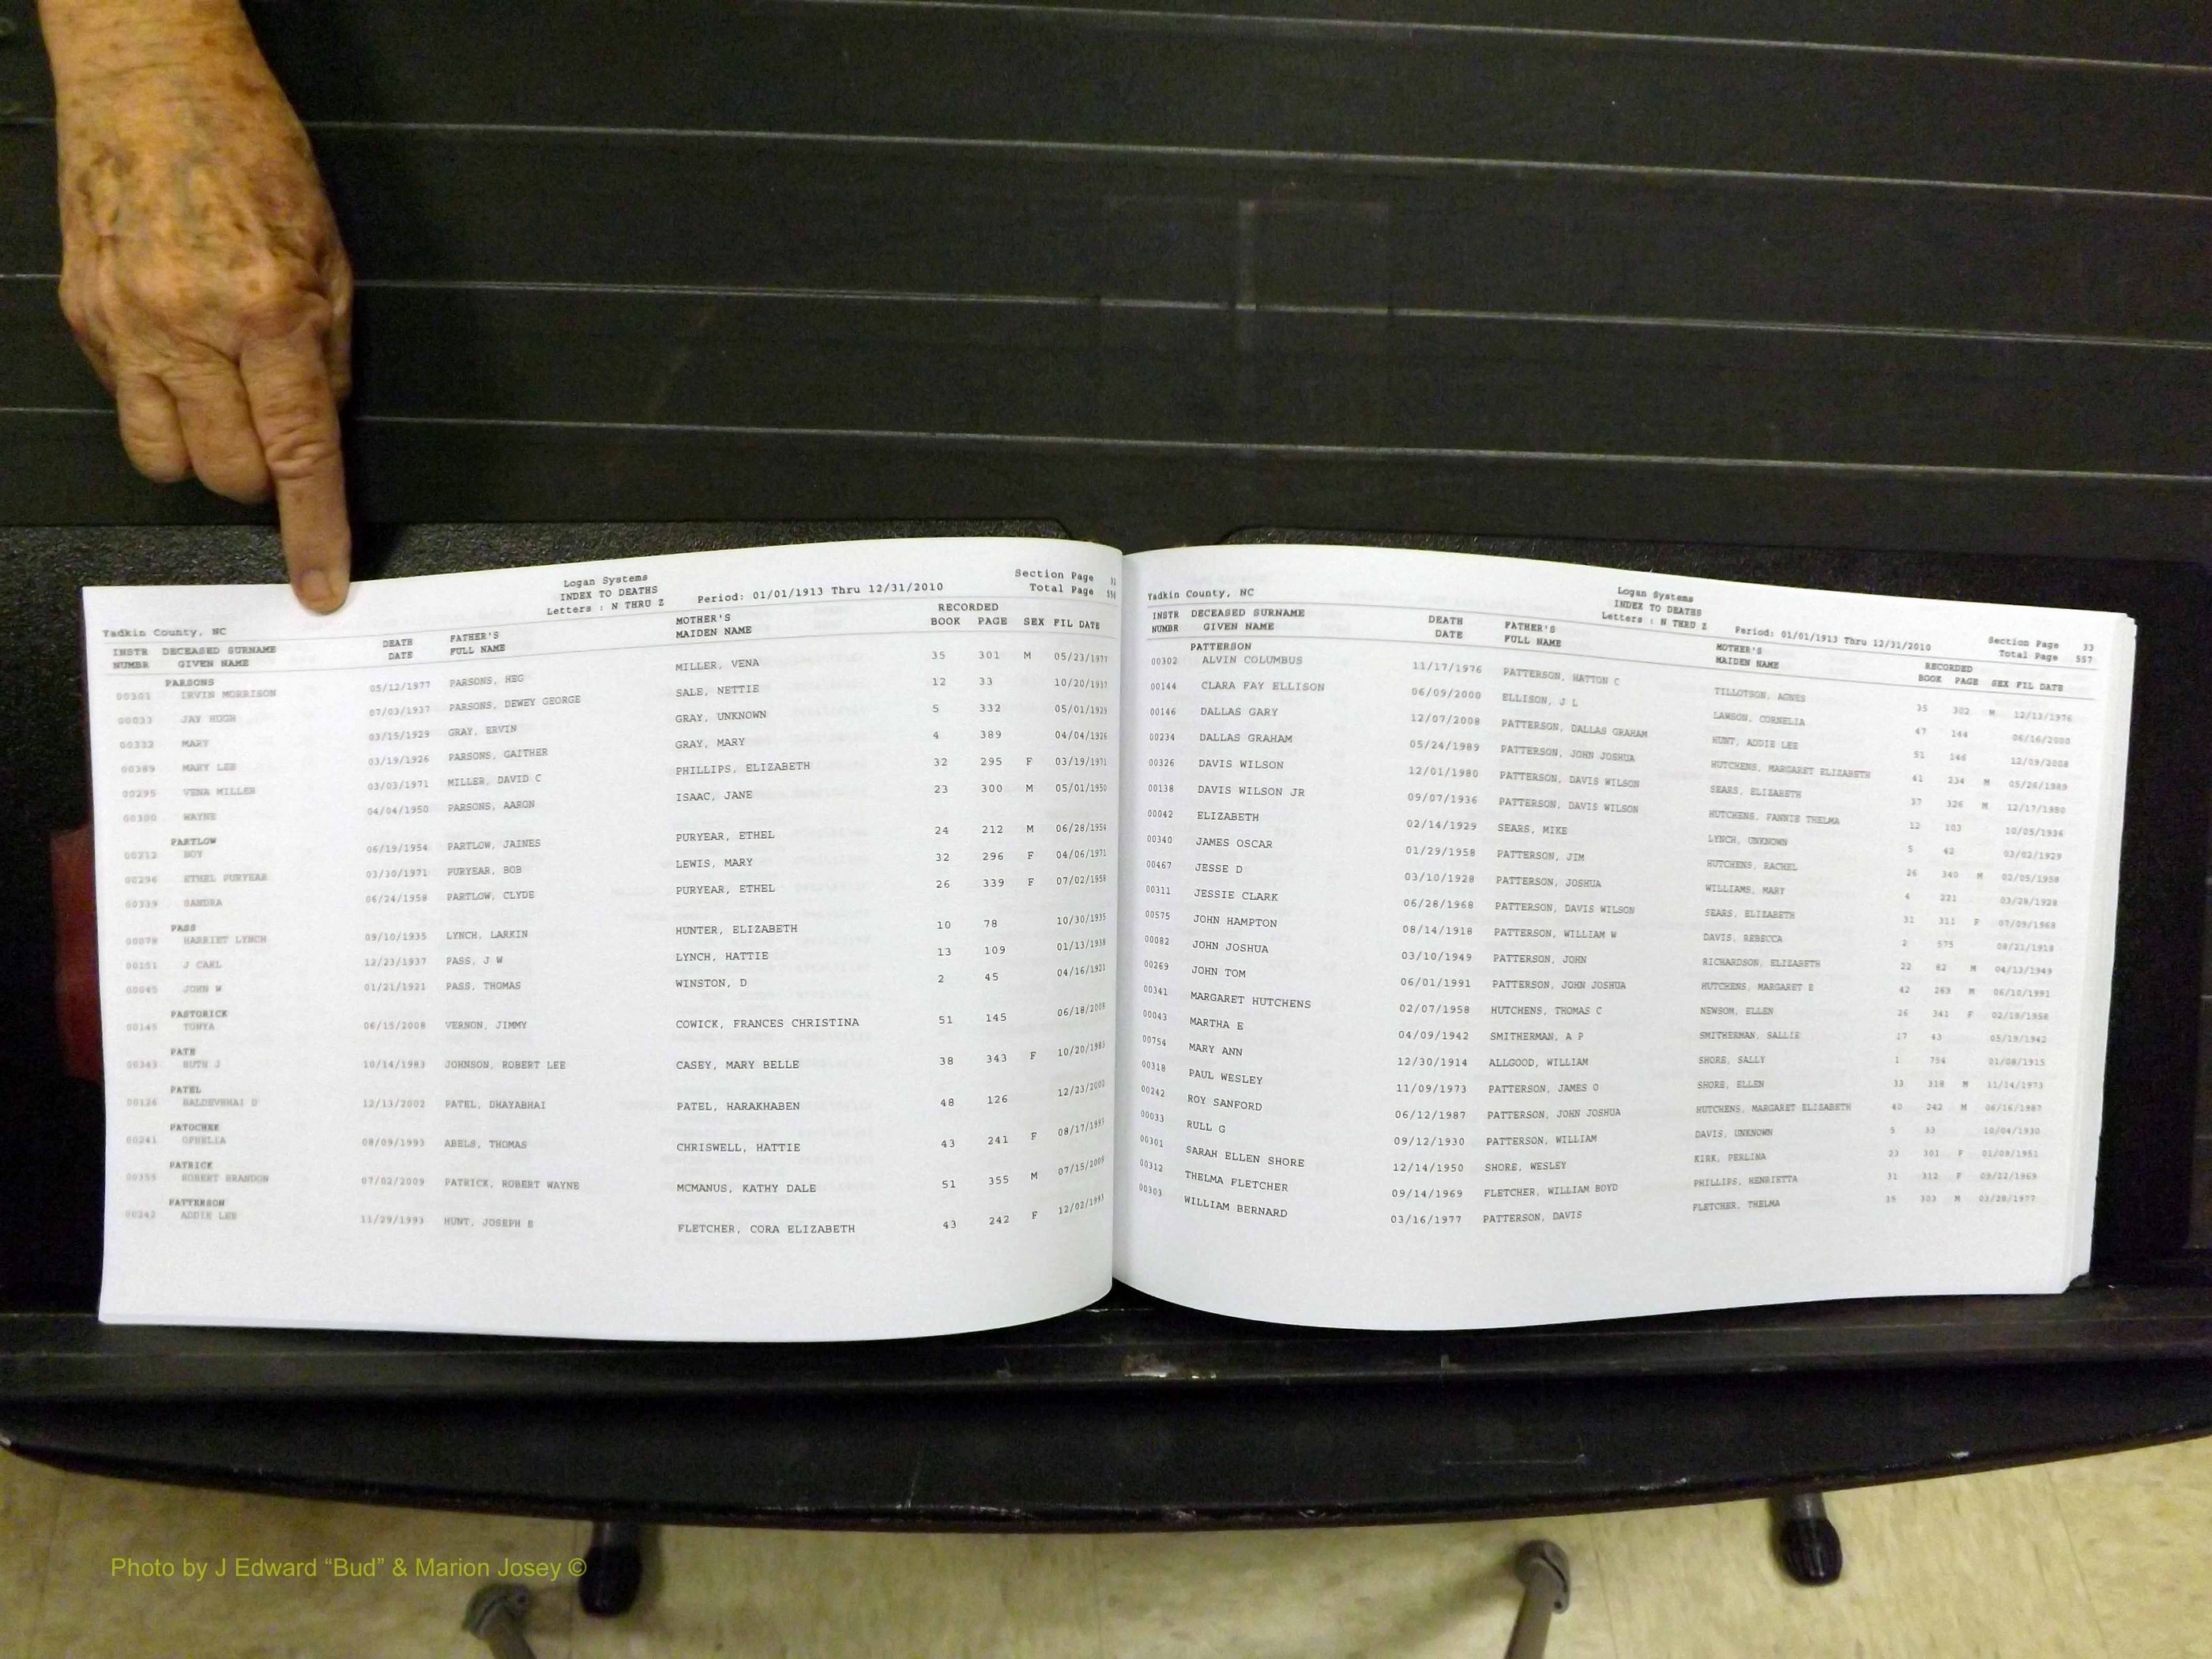 Logan Systems
INDEX TO DEATHS
Letters : N THRU Z Period: 01/01/1913 Thru 12/31/2010
Section Page
Total Page
Yadkin County, NC
INSTR DECEASED SURNAME DEATH FATHER'S MOTHER'S RECORDED
NUMBR GIVEN NAME DATE FULL NAME MAIDEN NAME BOOK PAGE SEX FIL DATE
PARSONS
00301 IRVIN MORRISON 05/12/1977 PARSONS, HEG MILLER, VENA 35 301 M 05/23/1977
00033 JAY HUGH 07/03/1937 PARSONS, DEWEY GEORGE SALE, NETTIE 12 33 10/20/1937
00332 MARY 03/15/1929 GRAY, ERVIN GRAY, UNKNOWN 5 332 05/01/1929
00389 MARY LEE 03/19/1926 PARSONS, GAITHER GRAY, MARY 4 389 04/04/1926
00295 VENA MILLER 03/03/1971 MILLER, DAVID C PHILLIPS, ELIZABETH 32 295 F 03/19/1971
00300 WAYNE 04/04/1950 PARSONS, AARON ISAAC, JANE 23 300 M 05/01/1950
PARTLOW
00212 BOY 06/19/1954 PARTLOW, JAINES PURYEAR, ETHEL 24 212 M 06/28/1954
00296 ETHEL PURYEAR 03/30/1971 PURYEAR, BOB LEWIS, MARY 32 296 F 04/06/1971
00339 SANDRA 06/24/1958 PARTLOW, CLYDE PURYEAR, ETHEL 26 339 F 07/02/1958
PASS
00078 HARRIET LYNCH 09/10/1935 LYNCH, LARKIN HUNTER, ELIZABETH 10 78 10/30/1935
00151 J CARL 12/23/1937 PASS, J W LYNCH, HATTIE 13 109 01/13/1938
00045 JOHN W 01/21/1921 PASS, THOMAS WINSTON, D 2 45 04/16/1921
PASTORICK
00145 TONYA 06/15/2008 VERNON, JIMMY COWICK, FRANCES CHRISTINA 51 145 06/18/2008
PATE
00343 RUTH J 10/14/1983 JOHNSON, ROBERT LEE CASEY, MARY BELLE 38 343 F 10/20/1983
PATEL
00126 BALDEVBHAI D 12/13/2002 PATEL, DHAYABHAI PATEL, HARAKHABEN 48 126 12/23/2002
PATOCHEE
00241 OPHELIA 08/09/1993 ABELS, THOMAS CHRISWELL, HATTIE 43 241 F 08/17/1993
PATRICK
00355 ROBERT BRANDON 07/02/2009 PATRICK, ROBERT WAYNE MCMANUS, KATHY DALE 51 355 M 07/15/2009
PATTERSON
00242 ADDIE LEE 11/29/1993 HUNT, JOSEPH E FLETCHER, CORA ELIZABETH 43 242 F 12/02/1993
Logan Systems
INDEX TO DEATHS
Letters : N THRU Z Period: 01/01/1913 Thru 12/31/2010
Section Page 33
Total Page 557
Yadkin County, NC
INSTR DECEASED SURNAME DEATH FATHER'S MOTHER'S RECORDED
NUMBR GIVEN NAME DATE FULL NAME MAIDEN NAME BOOK PAGE SEX FIL DATE
PATTERSON
00302 ALVIN COLUMBUS 11/17/1976 PATTERSON, HATTON C TILLOTSON, AGNES 35 302 M 12/13/1976
00144 CLARA FAY ELLISON 06/09/2000 ELLISON, J L LAWSON, CORNELIA 47 144 06/16/2000
00146 DALLAS GARY 12/07/2008 PATTERSON, DALLAS GRAHAM HUNT, ADDIE LEE 51 146 12/09/2008
00234 DALLAS GRAHAM 05/24/1989 PATTERSON, JOHN JOSHUA HUTCHENS, MARGARET ELIZABETH 41 234 M 05/26/1989
00326 DAVIS WILSON 12/01/1980 PATTERSON, DAVIS WILSON SEARS, ELIZABETH 37 326 M 12/17/1980
00138 DAVIS WILSON JR 09/07/1936 PATTERSON, DAVIS WILSON HUTCHENS, FANNIE THELMA 12 103 10/05/1936
00042 ELIZABETH 02/14/1929 SEARS, MIKE LYNCH, UNKNOWN 5 42 03/02/1929
00340 JAMES OSCAR 01/29/1958 PATTERSON, JIM HUTCHENS, RACHEL 26 340 M 02/05/1958
00467 JESSE D 03/10/1928 PATTERSON, JOSHUA WILLIAMS, MARY 4 221 03/28/1928
00311 JESSIE CLARK 06/28/1968 PATTERSON, DAVIS WILSON SEARS, ELIZABETH 31 311 F 07/09/1968
00575 JOHN HAMPTON 08/14/1918 PATTERSON, WILLIAM W DAVIS, REBECCA 2 575 08/21/1918
00082 JOHN JOSHUA 03/10/1949 PATTERSON, JOHN RICHARDSON, ELIZABETH 22 82 M 04/13/1949
00269 JOHN TOM 06/01/1991 PATTERSON, JOHN JOSHUA HUTCHENS, MARGARET E 42 269 M 06/10/1991
00341 MARGARET HUTCHENS 02/07/1958 HUTCHENS, THOMAS C NEWSOM, ELLEN 26 341 F 02/18/1958
00043 MARTHA E 04/09/1942 SMITHERMAN, A P SMITHERMAN, SALLIE 17 43 05/19/1942
00754 MARY ANN 12/30/1914 ALLGOOD, WILLIAM SHORE, SALLY 1 754 01/08/1915
00318 PAUL WESLEY 11/09/1973 PATTERSON, JAMES O SHORE, ELLEN 33 318 M 11/14/1973
00242 ROY SANFORD 06/12/1987 PATTERSON, JOHN JOSHUA HUTCHENS, MARGARET ELIZABETH 40 242 M 06/16/1987
00033 RULL G 09/12/1930 PATTERSON, WILLIAM DAVIS, UNKNOWN 5 33 10/04/1930
00301 SARAH ELLEN SHORE 12/14/1950 SHORE, WESLEY KIRK, PERLINA 23 301 F 01/09/1951
00312 THELMA FLETCHER 09/14/1969 FLETCHER, WILLIAM BOYD PHILLIPS, HENRIETTA 31 312 F 09/22/1969
00303 WILLIAM BERNARD 03/16/1977 PATTERSON, DAVIS FLETCHER, THELMA 35 303 M 03/28/1977
Photo by J Edward “Bud” & Marion Josey ©